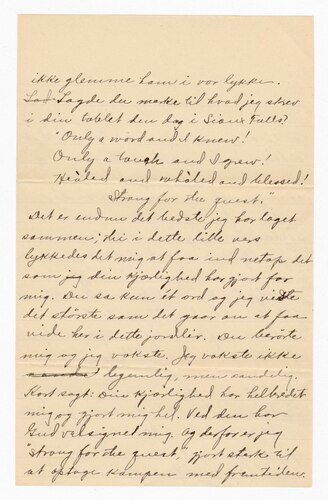 ikke glemme ham i vor lykke.
Lagde du mærke til hvad jeg skrev
i din tablet den dag i Sioux Falls?
"Only a word and I knew!
Only a touch and I grew!
Healed and whóled and blessed!
Strong for the quest."
Det er endnu det bedste jeg har laget
sammen; thi i dette lille vers
lykkedes det mig at faa ind netop det
som din kjærlighed har gjort for
mig. Du sa kun ét ord og jeg vidste
det største som det gaar an at faa
vide her i dette jordliv. Du berörte
mig og jeg vokste. Jeg vokste ikke
legemlig, men aandelig.
Kort sagt: Din kjærlighed har helbredet
mig og gjort mig hel. Ved den har
Gud velsignet mig. Og derfor er jeg
"strong for the quest," gjort stærk til
at optage kampen med fremtiden.